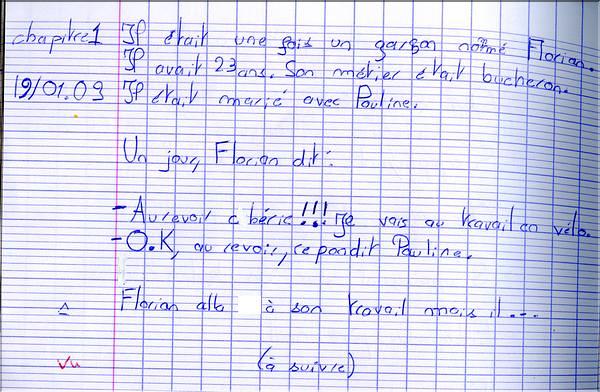 chapitre 1 Il était une fois un garçon nommé Florian.
Il avait 23 ans. Son métier était bucheron.
19/01.09 Il était marié avec Pauline.
Un jour, Florian dit :
- Au revoir chérie !!! Je vais au travail en vélo.
- O.K, au revoir, repondit Pauline.
Florian alla à son travail mais il...
(à suivre)
Vu